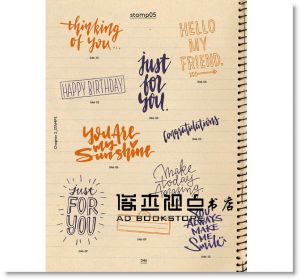 stamp05
thinking
of you...
HELLO
MY
FRIEND.
just
for
you.
HAPPY BIRTHDAY
You Are
my
Sunshine
Congratulations
Make
today
amazing
Just
FOR
YOU
AD BOOKSTORE
YOU
ALWAYS
MAKE
ME
Smile
Chapter 2_STAMPS
046